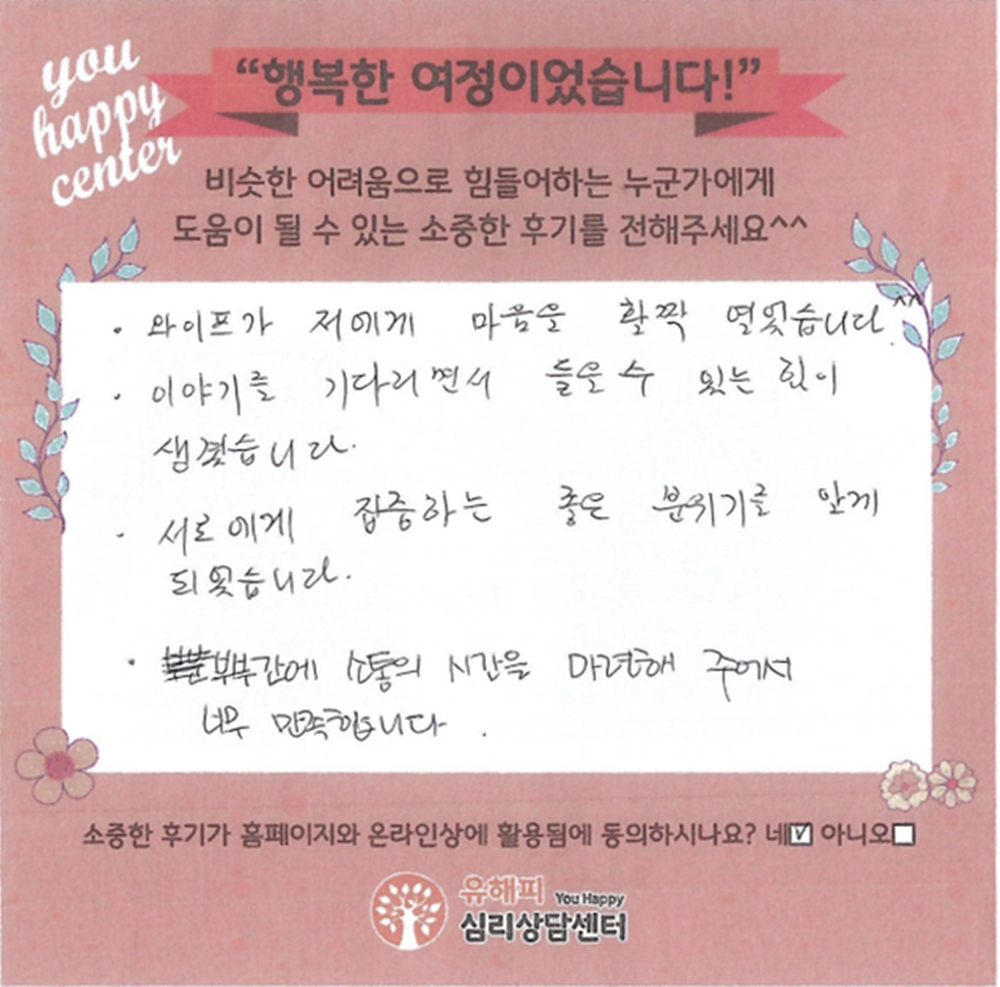 you
happy
center
“행복한 여정이었습니다!”
비슷한 어려움으로 힘들어하는 누군가에게
도움이 될 수 있는 소중한 후기를 전해주세요^^
· 와이프가 저에게 마음을 활짝 열었습니다^^
· 이야기를 기다리면서 들을 수 있는 힘이
생겼습니다.
· 서로에게 집중하는 좋은 분위기를 알게
되었습니다.
· 부부간에 소통의 시간을 마련해 주어서
너무 만족합니다.
소중한 후기가 홈페이지와 온라인상에 활용됨에 동의하시나요? 네☑ 아니오☐
유해피 You Happy
심리상담센터